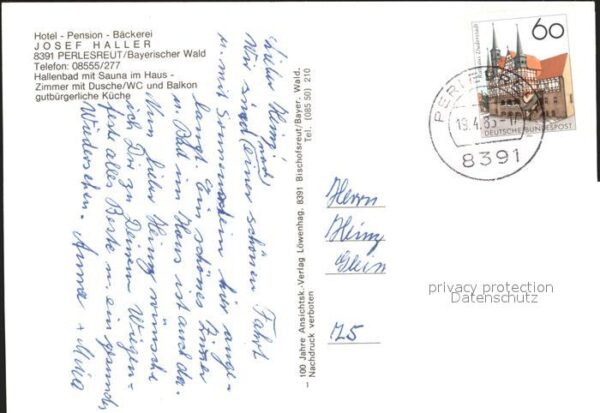 Hotel - Pension - Bäckerei
JOSEF HALLER
8391 PERLESREUT/Bayerischer Wald
Telefon: 08555/277
Hallenbad mit Sauna im Haus -
Zimmer mit Dusche/WC und Balkon
gutbürgerliche Küche
Lieber Heinz!
Wir sind nach einer schönen Fahrt
u. mit Sonnenschein hier ange-
langt. Ein schönes Zimmer
u. Bad im Haus ist auch da.
Nun lieber Heinz wünsche
ich Dir zu Deinem Wiegen-
feste alles Beste u. ein gesundes
Wiedersehen. Anna +
– 100 Jahre Ansichtsk.-Verlag Löwenhag, 8391 Bischofsreut/Bayer. Wald.
Nachdruck verboten Tel. (085 50) 210
60
DEUTSCHE BUNDESPOST
19.4.85
8391
Herrn
Heinz
Klein
75
privacy protection
Datenschutz